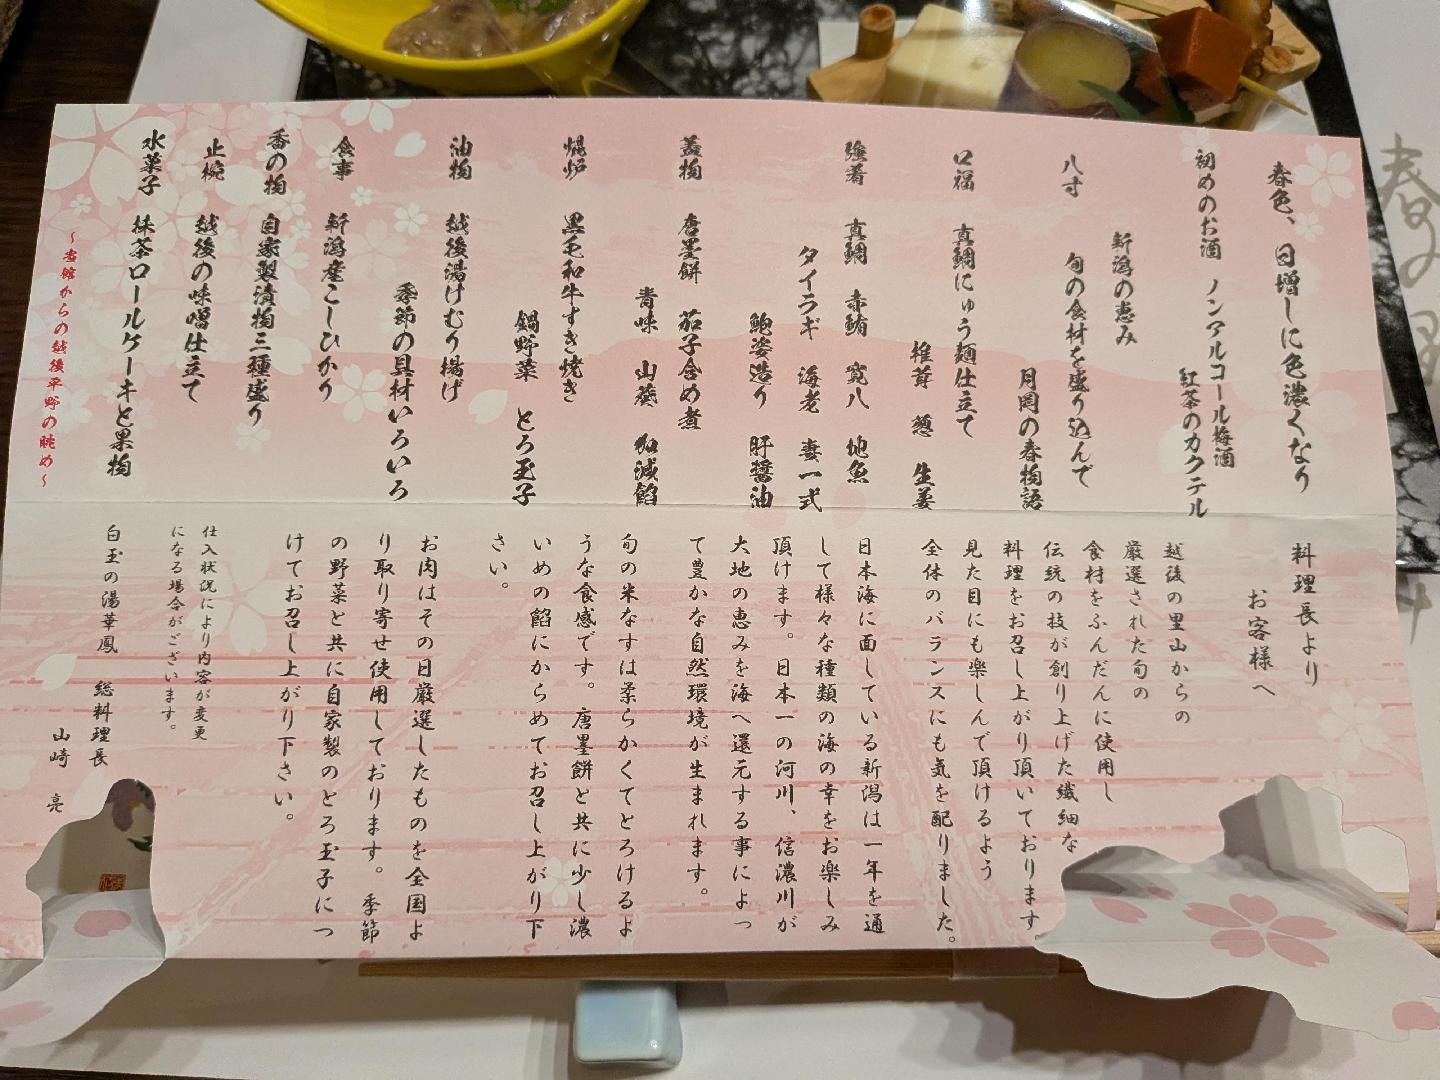 春色、日増しに色濃くなり
初めのお酒　ノンアルコール梅酒
紅茶のカクテル
新潟の恵み
八寸　旬の食材を盛り込んで
月岡の春物語
口福　真鯛にゅう麺仕立て
椎茸　葱　生姜
強肴　真鯛　赤鮪　寛八　地魚
タイラギ　海老　妻一式
鮑姿造り　肝醤油
蓋物　唐墨餅　茄子含め煮
青味　山葵　加減餡
焜炉　黒毛和牛すき焼き
鍋野菜　とろ玉子
油物　越後湯けむり揚げ
季節の具材いろいろ
食事　新潟産こしひかり
香の物　自家製漬物三種盛り
止椀　越後の味噌仕立て
水菓子　抹茶ロールケーキと果物
～当館からの越後平野の眺め～
料理長より
お客様へ
越後の里山からの
厳選された旬の
食材をふんだんに使用し
伝統の技が創り上げた繊細な
料理をお召し上がり頂いております。
見た目にも楽しんで頂けるよう
全体のバランスにも気を配りました。
日本海に面している新潟は一年を通
して様々な種類の海の幸をお楽しみ
頂けます。日本一の河川、信濃川が
大地の恵みを海へ還元する事によっ
て豊かな自然環境が生まれます。
旬の米なすは柔らかくてとろけるよ
うな食感です。唐墨餅と共に少し濃
いめの餡にからめてお召し上がり下
さい。
お肉はその日厳選したものを全国よ
り取り寄せ使用しております。季節
の野菜と共に自家製のとろ玉子につ
けてお召し上がり下さい。
仕入状況により内容が変更
になる場合がございます。
白玉の湯華鳳　総料理長
山崎　亮
春の